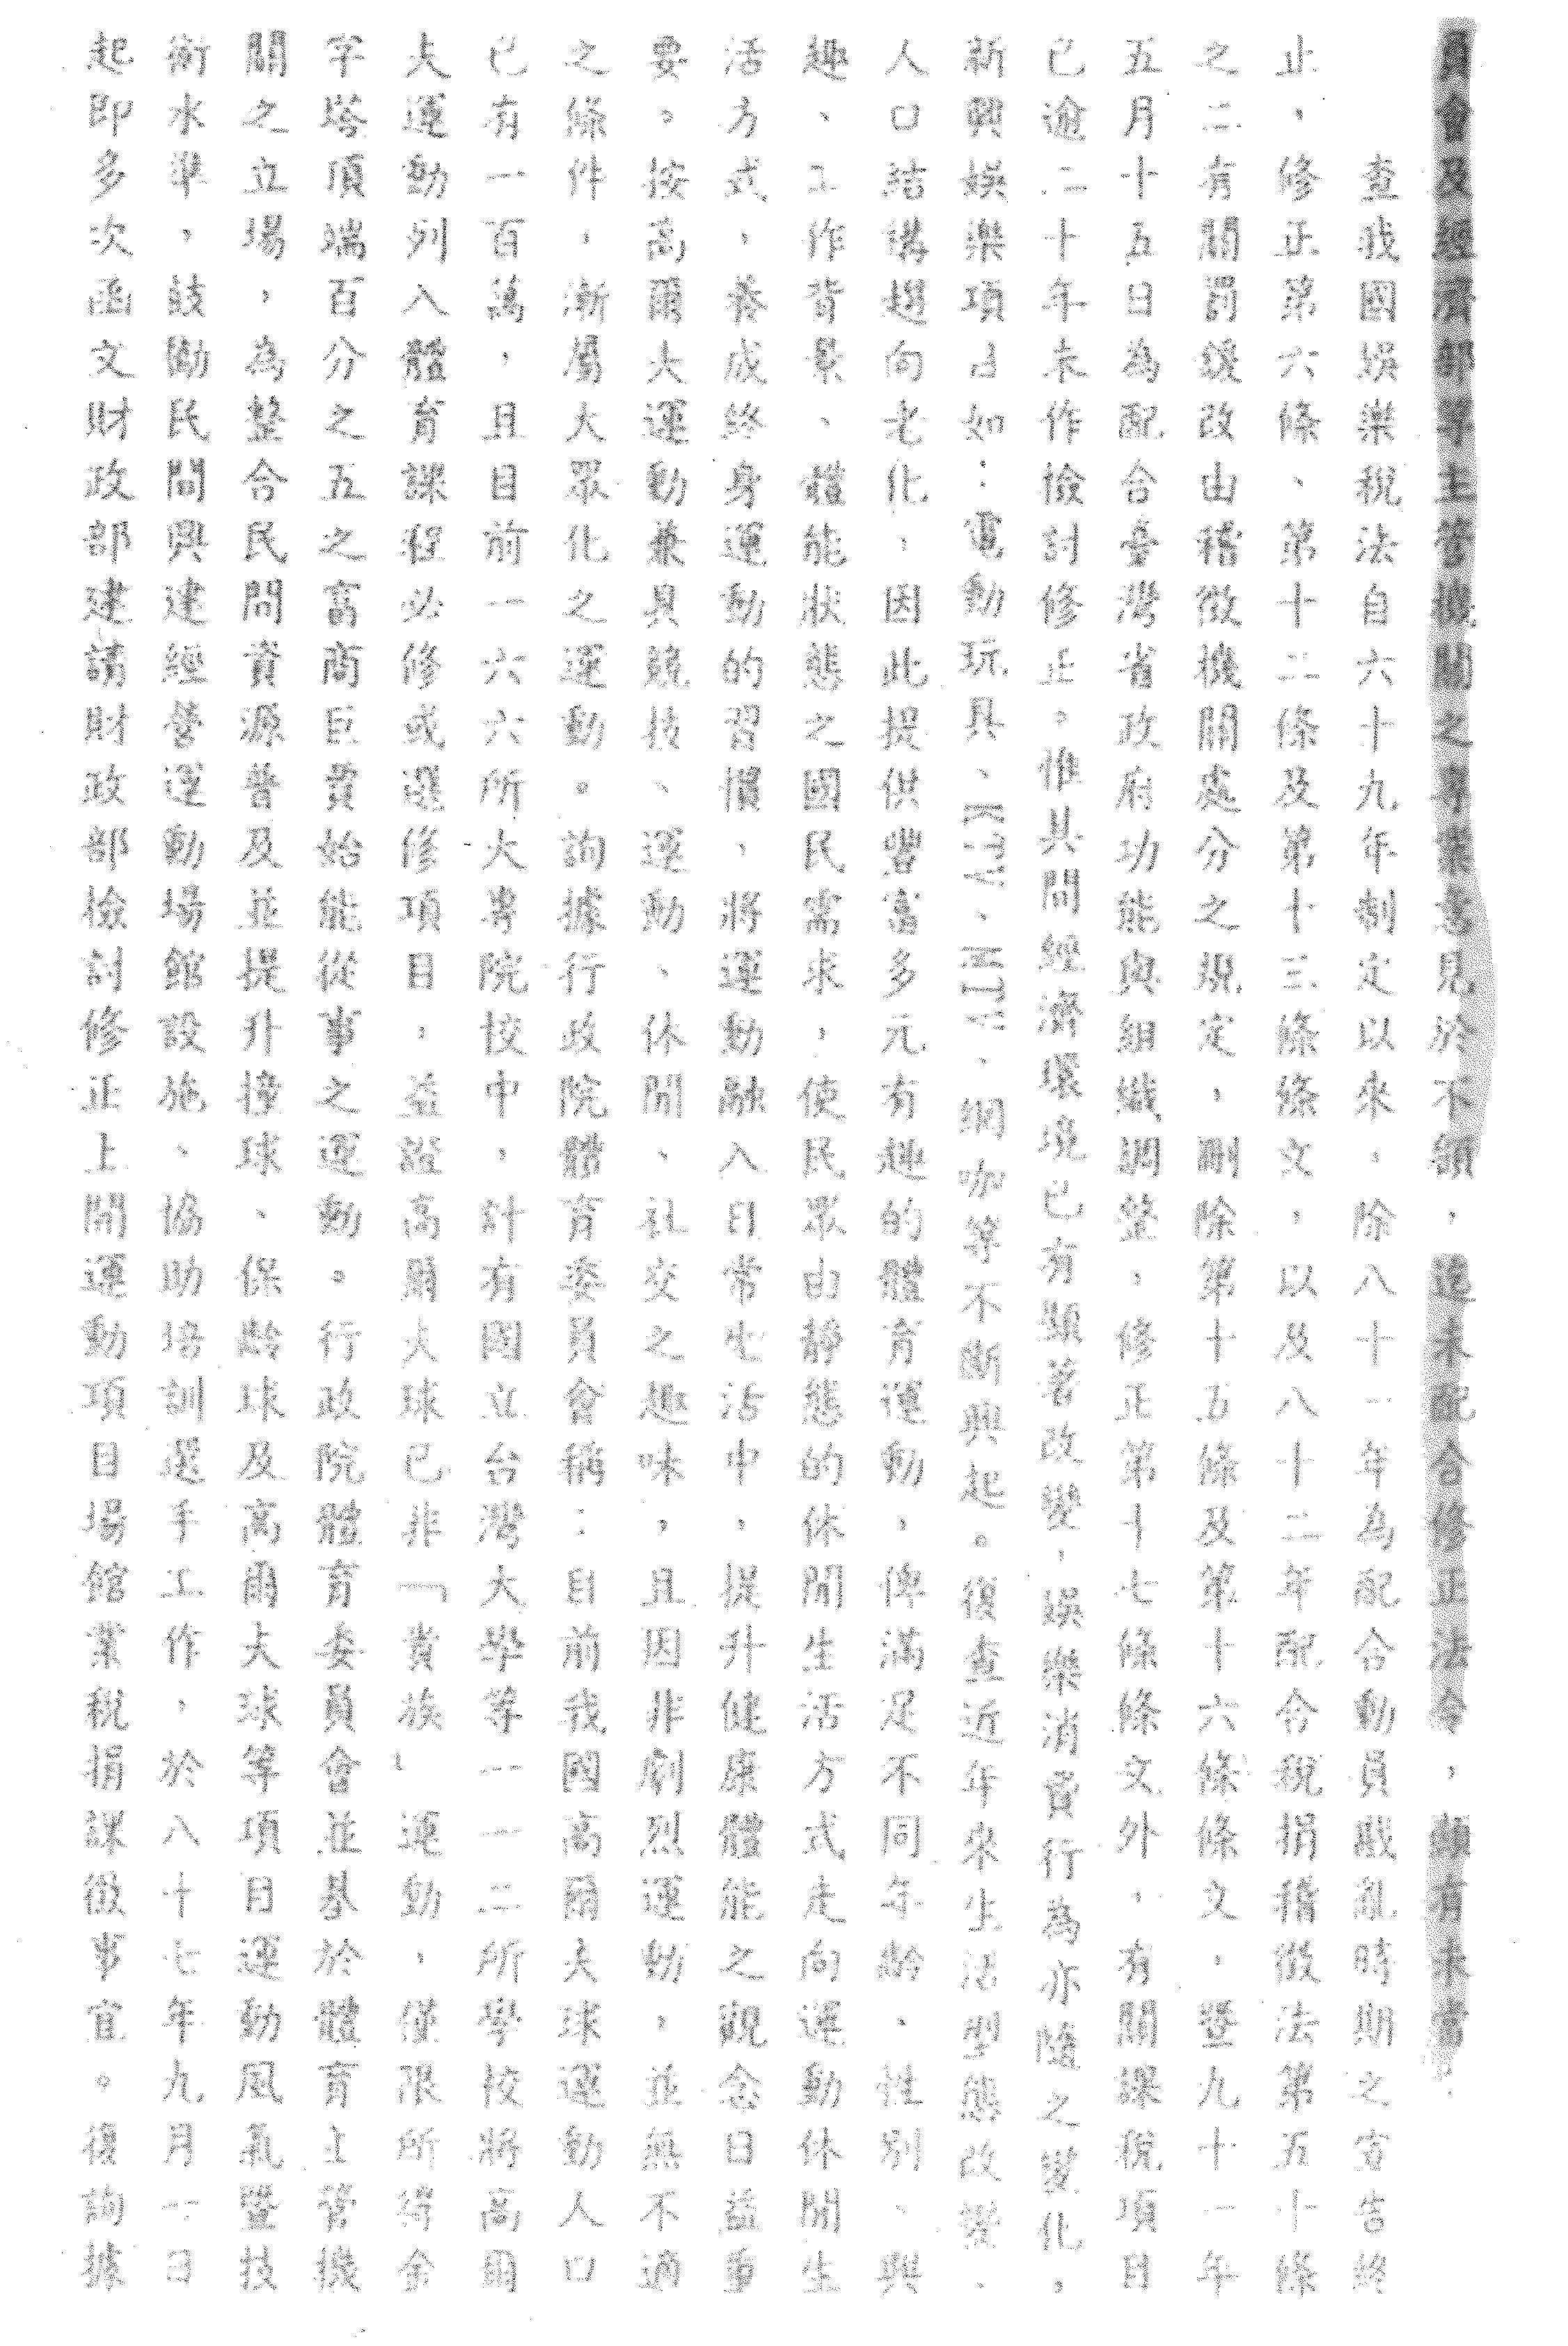 員會及經濟部等主管機關之專業意見於不顧，迄未配合修正法令，顯有未當。
查我國娛樂稅法自六十九年制定以來，除八十一年為配合動員戡亂時期之宣告終
止，修正第六條、第十二條及第十三條條文，以及八十二年配合稅捐稽徵法第五十條
之二有關罰鍰改由稽徵機關處分之規定，刪除第十五條及第十六條條文，暨九十一年
五月十五日為配合臺灣省政府功能與組織調整，修正第十七條條文外，有關課稅項目
已逾二十年未作檢討修正。惟其間經濟環境已有顯著改變，娛樂消費行為亦隨之變化，
新興娛樂項目如：電動玩具、KTV、MTV、網咖等不斷興起。復查近年來生活型態改變、
人口結構趨向老化，因此提供豐富多元有趣的體育運動，俾滿足不同年齡、性別、興
趣、工作背景、體能狀態之國民需求，使民眾由靜態的休閒生活方式走向運動休閒生
活方式，養成終身運動的習慣，將運動融入日常生活中，提升健康體能之觀念日益重
要。按高爾夫運動兼具競技、運動、休閒、社交之趣味，且因非劇烈運動，並無不適
之條件，漸屬大眾化之運動。詢據行政院體育委員會稱：目前我國高爾夫球運動人口
已有一百萬，且目前一六六所大專院校中，計有國立台灣大學等一一二所學校將高爾
夫運動列入體育課程必修或選修項目，益證高爾夫球已非「貴族」運動，僅限所得金
字塔頂端百分之五之富商巨賈始能從事之運動。行政院體育委員會並基於體育主管機
關之立場，為整合民間資源普及並提升撞球、保齡球及高爾夫球等項目運動風氣暨技
術水準，鼓勵民間興建經營運動場館設施、協助培訓選手工作，於八十七年九月一日
起即多次函文財政部建請財政部檢討修正上開運動項目場館業稅捐課徵事宜。復詢據